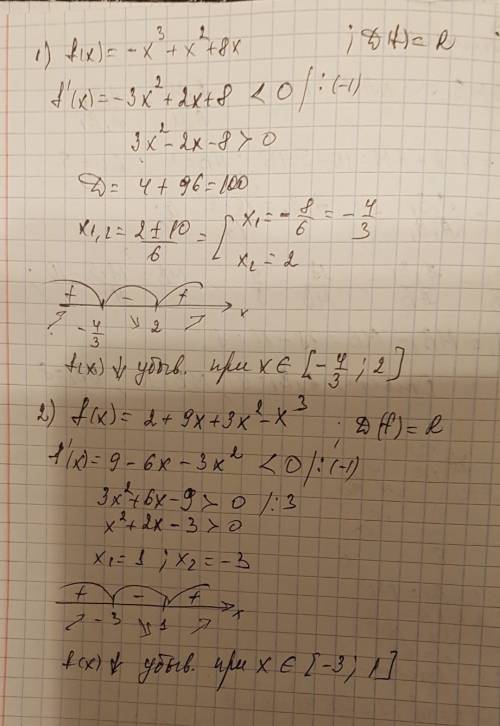 1) f(x) = -x³ + x² + 8x ; D(f) = R
f'(x) = -3x² + 2x + 8 < 0 /:(-1)
3x² - 2x - 8 > 0
D = 4 + 96 = 100
x₁,₂ = (2 ± 10)/6 = [ x₁ = -8/6 = -4/3
x₂ = 2
+ - +
↗ -4/3 ↘ 2 ↗ x
f(x) ↓ убыв. при x ∈ [-4/3 ; 2]
2) f(x) = 2 + 9x + 3x² - x³ ; D(f) = R
f'(x) = 9 - 6x - 3x² < 0 /:(-1)
3x² + 6x - 9 > 0 /:3
x² + 2x - 3 > 0
x₁ = 1 ; x₂ = -3
+ - +
↗ -3 ↘ 1 ↗ x
f(x) ↓ убыв. при x ∈ [-3 ; 1]